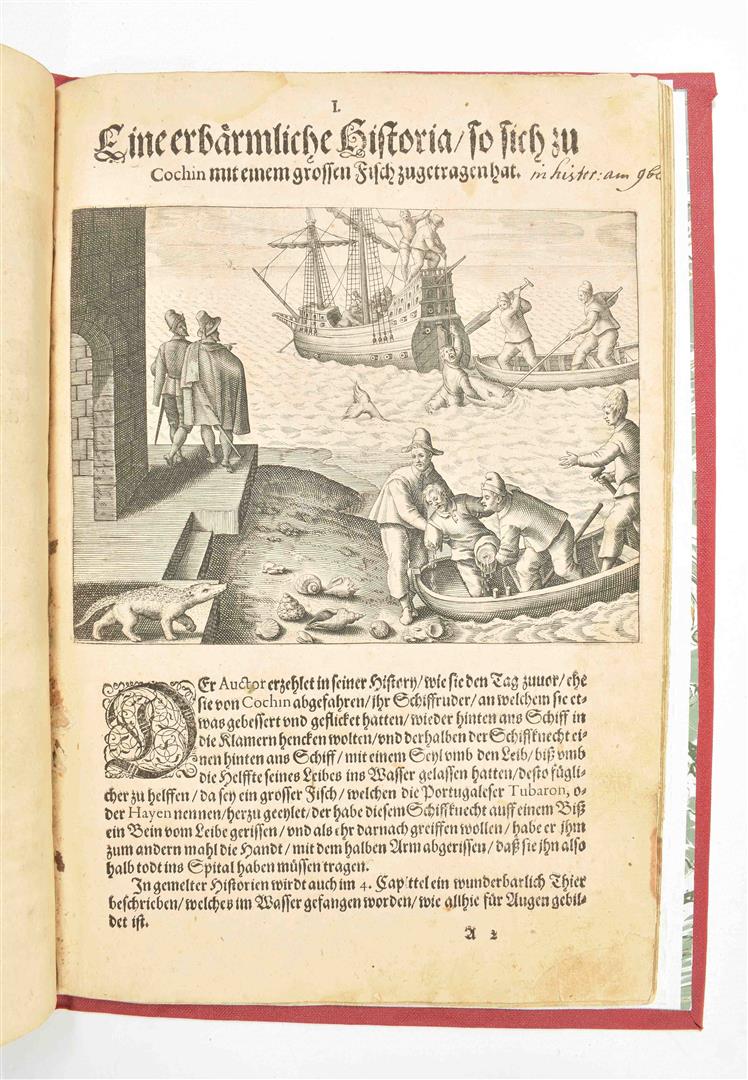 I.
Eine erbärmliche Historia/ so sich zu
Cochin mit einem grossen Fisch zugetragen hat. in histor: am
DEr Auctor erzehlet in seiner History/ wie sie den Tag zuuor/ ehe
sie von Cochin abgefahren/ ihr Schiffruder/ an welchem sie et-
was gebessert vnd geflicket hatten/ wieder hinten ans Schiff in
die Klamern hencken wolten/ vnd derhalben der Schiffknecht ei-
nen hinten ans Schiff/ mit einem Seyl vmb den Leib/ biß vmb
die Helffte seines Leibes ins Wasser gelassen hatten/ desto füg-
licher zu helffen/ da sey ein grosser Fisch/ welchen die Portugaleser Tubaron, o-
der Hayen nennen/ herzu geeylet/ der habe diesem Schiffknecht auff einem Biß
ein Bein vom Leibe gerissen/ vnd als ehr darnach greiffen wollen/ habe er ihm
zum andern mahl die Handt/ mit dem halben Arm abgerissen/ daß sie ihn also
halb todt ins Spital haben müssen tragen.
In gemelter Historien wirdt auch im 4. Capittel ein wunderbarlich Thier
beschrieben/ welches im Wasser gefangen worden/ wie allhie für Augen gebil-
det ist.
A 2